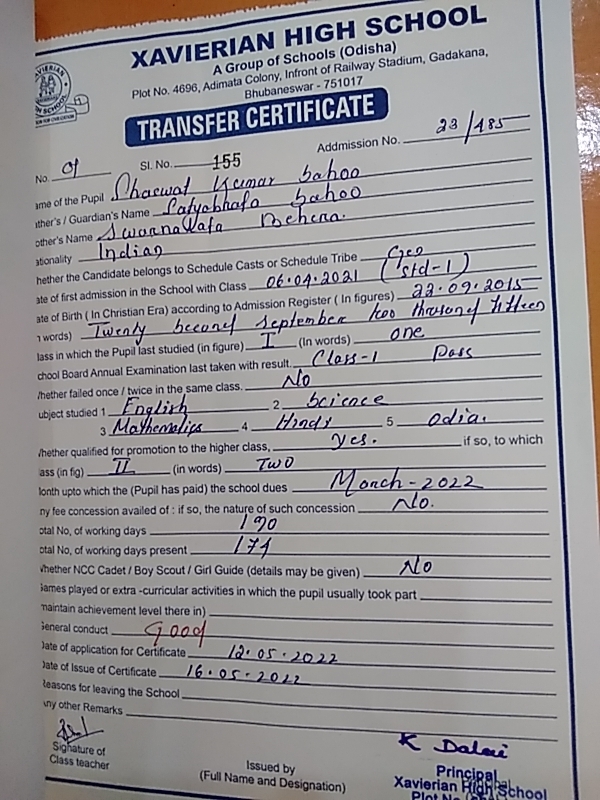 XAVIERIAN HIGH SCHOOL
A Group of Schools (Odisha)
Plot No. 4696, Adimata Colony, Infront of Railway Stadium, Gadakana,
Bhubaneswar - 751017
TRANSFER CERTIFICATE
No. 01 Sl. No. 155 Addmission No. 23/185
ame of the Pupil Shaswat Kumar Sahoo
ther's / Guardian's Name Satyabhafa Sahoo
other's Name Swarnallata Behera.
ationality Indian
hether the Candidate belongs to Schedule Casts or Schedule Tribe Gen
ate of first admission in the School with Class 06.04.2021 (Std-1)
ate of Birth ( In Christian Era) according to Admission Register ( In figures) 22.09.2015
n words) Twenty Second September two thousand fifteen
lass in which the Pupil last studied (in figure) I (In words) one
chool Board Annual Examination last taken with result. Class-1 Pass
hether failed once / twice in the same class. No
ubject studied 1 English 2 Science
3 Mathematics 4 Hindi 5 Odia.
hether qualified for promotion to the higher class, yes. if so, to which
ass (in fig) II (in words) Two
onth upto which the (Pupil has paid) the school dues March-2022
ny fee concession availed of : if so, the nature of such concession No.
otal No, of working days 190
otal No, of working days present 174
hether NCC Cadet / Boy Scout / Girl Guide (details may be given) No
ames played or extra -curricular activities in which the pupil usually took part
maintain achievement level there in)
eneral conduct Good
ate of application for Certificate 12.05.2022
ate of Issue of Certificate 16.05.2022
easons for leaving the School
ny other Remarks
Signature of
Class teacher
Issued by
(Full Name and Designation)
K Dalai
Principal
Xavierian High School
Plot No